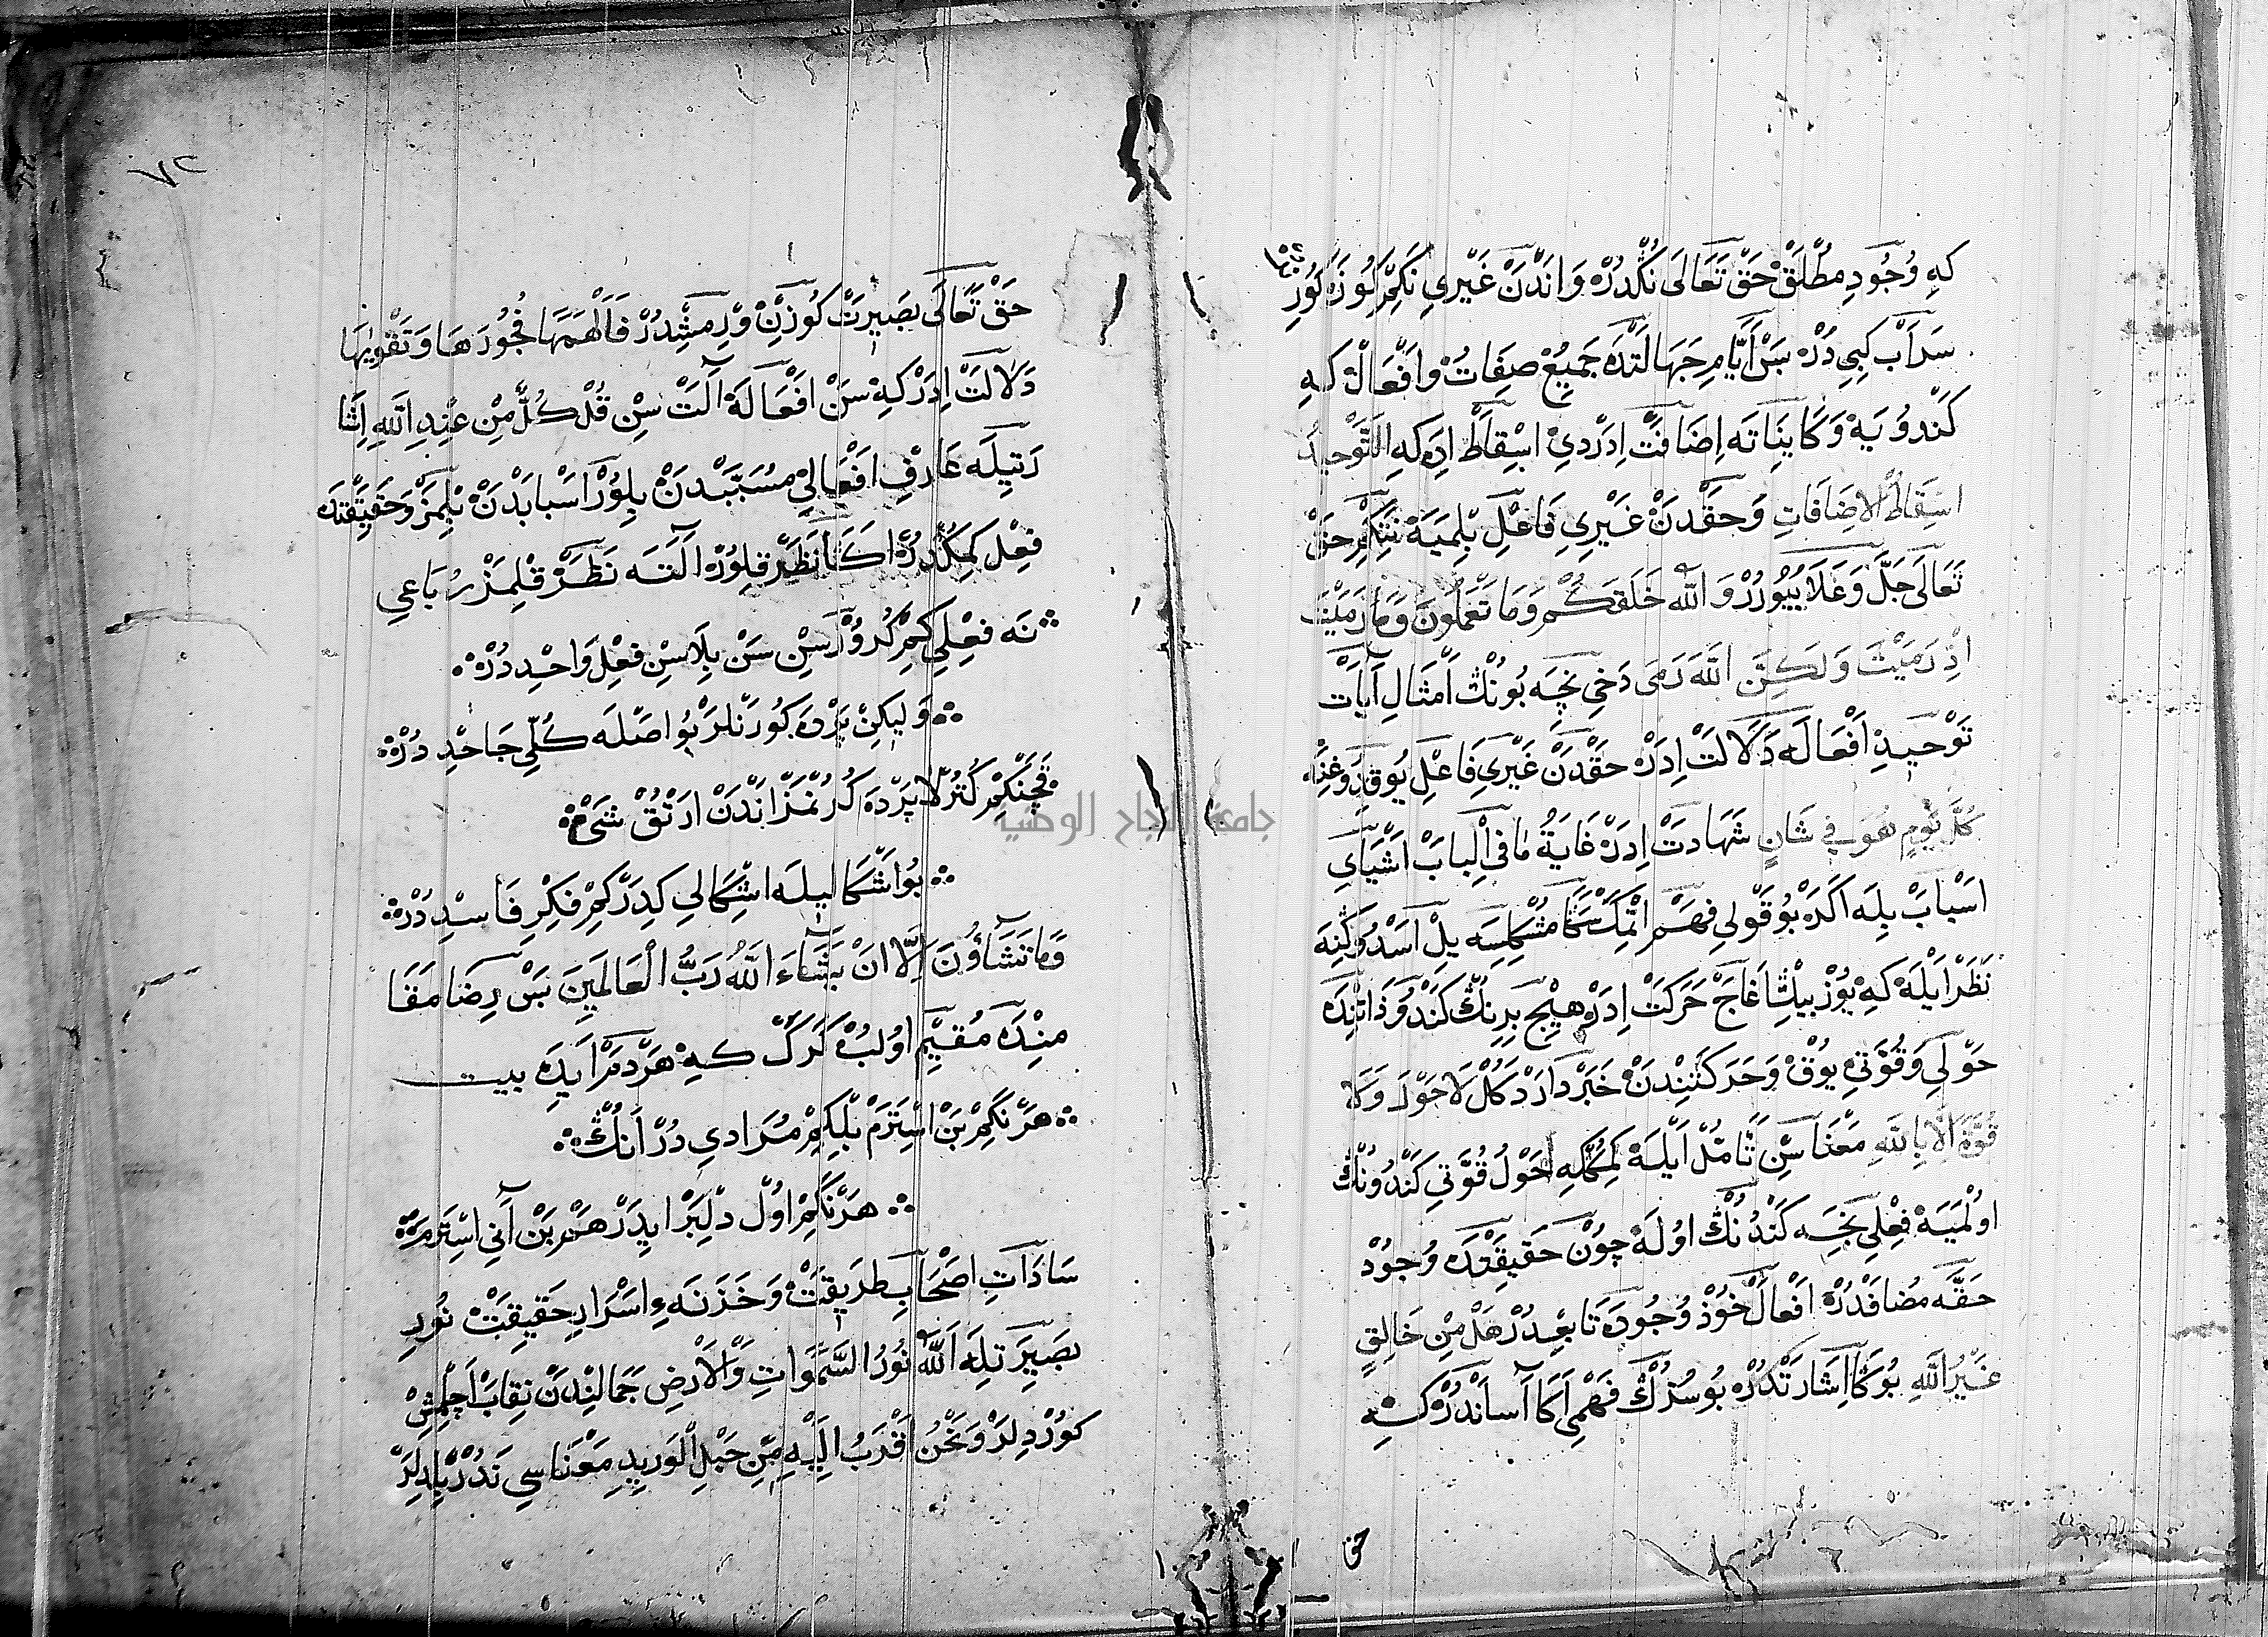 كه وُجُودِ مُطْلَقْ حَقْ تَعَالَى نُكْدُرْ وَ اَنْدَنْ غَيْرِي نَكِمْ كُوزَه كُورِنُر
سَرَابْ كِبِي دُرْ بَسْ اَيَّامِ جَهَالَتْدَه جَمِيعْ صِفَاتْ وَ اَفْعَالْ كه
كَنْدُويَه وَ كَايِنَاتَه اِضَافَتْ اِدَرْدِي اِسْقِاطْ اِدَه كه التَّوْحِيدُ
اِسْقَاطُ الْاِضَافَاتِ وَ حَقْدَنْ غَيْرِي فَاعِلْ بِلْمَيَه نِتَكِمْ حَقْ
تَعَالَى جَلَّ وَ عَلَا بُيُورُرْ وَ اللّٰه خَلَقَكُمْ وَمَا تَعْمَلُونَ وَمَا رَمَيْتَ
اِذْ رَمَيْتَ وَلَكِنَّ اللّٰهَ رَمَى دَخِي نَچَه بُونُكْ اَمْثَالِ آيَاتْ
تَوْحِيدِ اَفْعَالَه دَلَالَتْ اِدَرْ حَقْدَنْ غَيْرِي فَاعِلْ يُوقْدُوغِنَه
كُلَّ يَوْمٍ هُوَ فِي شَانٍ شَهَادَتْ اِدَرْ غَايَةُ مَا فِي الْبابْ اَشْيَايِ
اَسْبَابْ بِلَه اَكَرْ بُو قَوْلِي فِهَمْ اِتْمَكْ سَكَا مُشْكِلِسَه يِلْ اَسْدُوكِنَه
نَظَرْ اَيْلَه كِه يُوزْ بِيكْ اَغَاجْ حَرَكَتْ اِدَرْ هِيچْ بِرِنُكْ كَنْدُو ذَاتِنْدَه
حَوْلِي وَ قُوَّتِي يُوقْ وَ حَرَكَتِنْدَنْ خَبَرْدَارْ دَكُلْ لَا حَوْلَ وَلَا
قُوَّةَ اِلَّا بِاللّٰهِ مَعْنَاسِنْ تَامُّلْ اَيْلَه كِمْسَكِه حَوْلُ قُوَّتِي كَنْدُونُكْ
اُولْمَيَه فِعْلِي نَجَه كَنْدُنُكْ اُولَه چُونْ حَقِيقَتْدَه وُجُودْ
حَقَّه مُضَافْدُرْ اَفْعَالْ خُوذْ وُجُودَه تَابِعْدُرْ هَلْ مِنْ خَالِقٍ
غَيْرُ اللّٰهِ بُوكَا اِشَارَتْدُرْ بُو سُزُكْ فَهْمِي اَكَا آسَانْدُرْ كِه
حق
٧٢
حَقْ تَعَالَى بَصِيرَتْ كُوزِنْ وِرْمِشْدُرْ فَاَلْهَمَهَا فُجُورَهَا وَتَقْوٰيهَا
دَلَالَتْ اِدَرْ كِه سَنْ اَفْعَالَه آلَتْ سِنْ قُلْ كُلٌّ مِنْ عِنْدِ اللّٰهِ اِشَا
رَتِيلَه عَارِفِ اَفْعَالِي مُسَبِّبْدَنْ بِلُورْ اَسْبَابْدَنْ بِلْمَزْ وَ حَقِيقَتْدَه
فِعْل كِمِكْدُرْ اَكَا نَظَرْ قِلُورْ آلَتَه نَظَرْ قِلْمَزْ رُبَاعِي
نَه فِعْلِي كِمْ كُرُورْسِنْ سَنْ بِلَاسِنْ فِعْلِ وَاحِدْ دُرْ
وَلِيكِنْ پَرْدَه كُورَنْلَرْ بُو اَصْلَه كُلِّي جَاحِدْ دُرْ
قَچَنْكِمْ كُتُرُلَا پَرْدَه كُرُنْمَزْ اَنْدَنْ اَرْتُقْ شَيْ
بُو اَشْكَالِيلَه اِشْكَالِي كِدَرْ كِمْ فِكْرِ فَاسِدْ دُرْ
وَمَا تَشَاؤُنَ اِلَّا اَنْ يَشَاءَ اللّٰهُ رَبُّ الْعَالَمِينَ بَسْ رِضَا مَقَا
مِنْدَه مُقِيمْ اُولُبْ كَرَكْ كِه هَرْدَمْ اَيِدَه بيت
هَرْ نَكِمْ بَنْ اِسْتَرَمْ بْلِيكِمْ مُرَادِي دُرْ اَنُكْ
هَرْ نَكِمْ اُولْ دِلْبَرْ اِيدَرْ هَمْ بَنْ آنِي اِسْتَرَمْ
سَادَاتِ اَصْحَابِ طَرِيقَتْ وَ خَزَنَه ءِ اَسْرَارِ حَقِيقَتْ نُورِ
بَصِيرَتِلَه اَللّٰهُ نُورُ السَّمَوَاتِ وَالْاَرْضِ جَمَالِنْدَنْ نِقَابْ اَچِلْمِشْ
كُورْدِلَرْ وَنَحْنُ اَقْرَبُ اِلَيْهِ مِنْ حَبْلِ الْوَرِيدِ مَعْنَاسِي نَدُرْ بِلْدِلَرْ
جامعة النجاح الوطنية